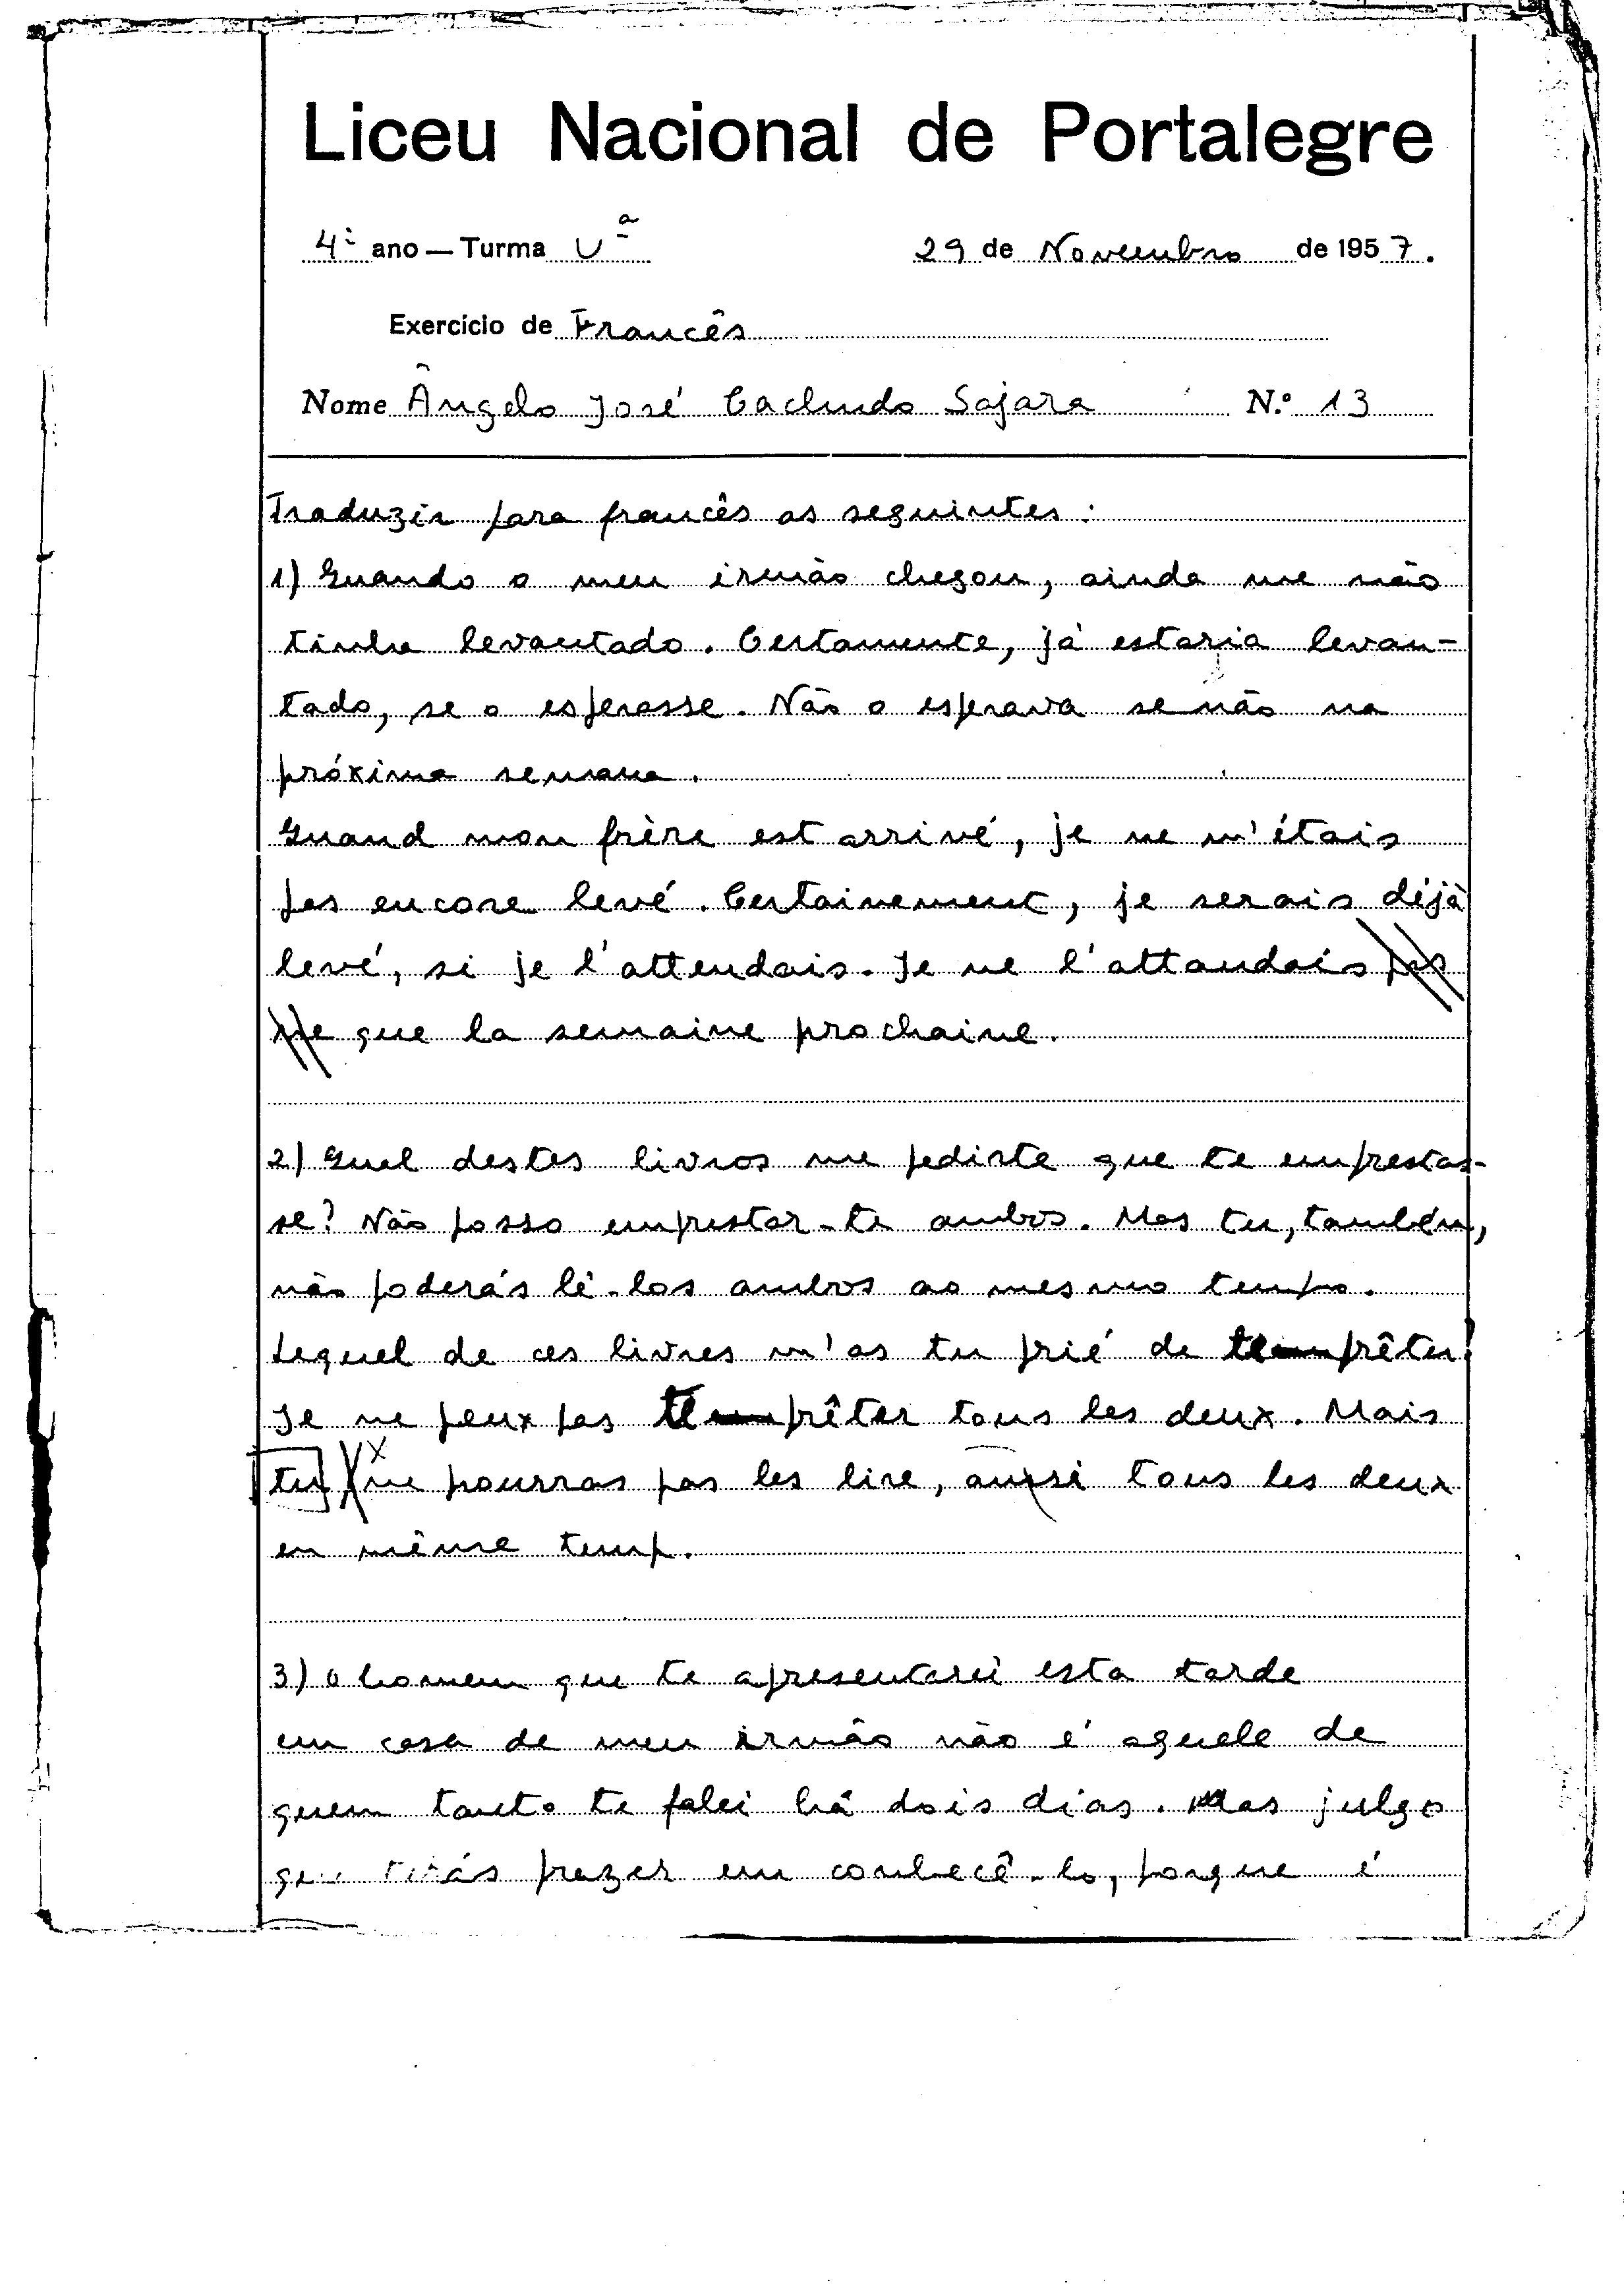 Liceu Nacional de Portalegre
4º ano — Turma Uª 29 de Novembro de 1957.
Exercício de Francês
Nome Ângelo José Cachudo Sajara N.º 13
Traduzir para francês as seguintes:
1) Quando o meu irmão chegou, ainda me não
tinha levantado. Certamente, já estaria levan-
tado, se o esperasse. Não o esperava se não na
próxima semana.
Quand mon frère est arrivé, je ne m'étais
pas encore levé. Certainement, je serais déjà
levé, si je l'attendais. Je ne l'attandais pas
que la semaine prochaine.
2) Qual destes livros me pediste que te empresta-
se? Não posso emprestar-te ambos. Mas tu, também,
não poderás lê-los ambos ao mesmo tempo.
Lequel de ces livres m'as tu prié de te prêter?
Je ne peux pas te prêter tous les deux. Mais
tu ne pourras pas les lire, aussi tous les deux
en même temp.
3) O homem que te apresentarei esta tarde
em casa de meu irmão não é aquele de
quem tanto te falei há dois dias. Mas julgo
que terás prazer em conhecê-lo, porque é